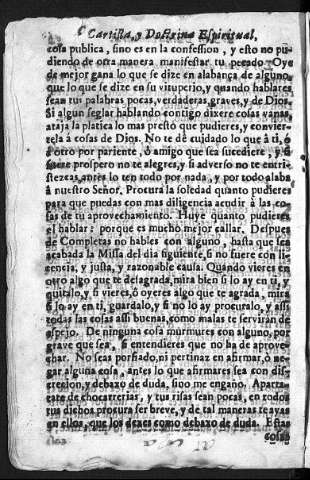 Cartilla, y Doctrina Espiritual,
cosa publica, sino es en la confession, y esto no pu-
diendo de otra manera manifestar tu pecado. Oye
de mejor gana lo que se dize en alabança de alguno,
que lo que se dize en su vituperio, y quando hablares
sean tus palabras pocas, verdaderas, graves, y de Dios.
Si algun seglar hablando contigo dixere cosas vanas,
ataja la platica lo mas presto que pudieres, y convier-
tela à cosas de Dios. No te dè cuidado lo que à ti, ò
à otro por pariente, ò amigo que sea sucediere, y si
fuere prospero no te alegres, y si adverso no te entri-
stezcas, antes lo ten todo por nada, y por todo alaba
à nuestro Señor. Procura la soledad quanto pudieres
para que puedas con mas diligencia acudir à las co-
sas de tu aprovechamiento. Huye quanto pudieres
el hablar: porque es mucho mejor callar. Despues
de Completas no hables con alguno, hasta que sea
acabada la Missa del dia siguiente, si no fuere con li-
cencia, y justa, y razonable causa. Quando vieres en
otro algo que te desagrada, mira bien si lo ay en ti, y
quitalo, y si vieres, ò oyeres algo que te agrada, mira
si lo ay en ti, guardalo, y si no lo ay procuralo, y assi
todas las cosas assi buenas, como malas te serviràn de
espejo. De ninguna cosa murmures con alguno, por
grave que sea, si entendieres que no ha de aprove-
char. No seas porfiado, ni pertinaz en afirmar, ò ne-
gar alguna cosa, antes lo que afirmares sea con dis-
crecion, y debaxo de duda, sino me engaño. Aparta-
te de chocarrerias, y tus risas sean pocas, en todos
tus dichos procura ser breve, y de tal manera te ayas
en ellos, que los dexes como debaxo de duda. Estas
cosas